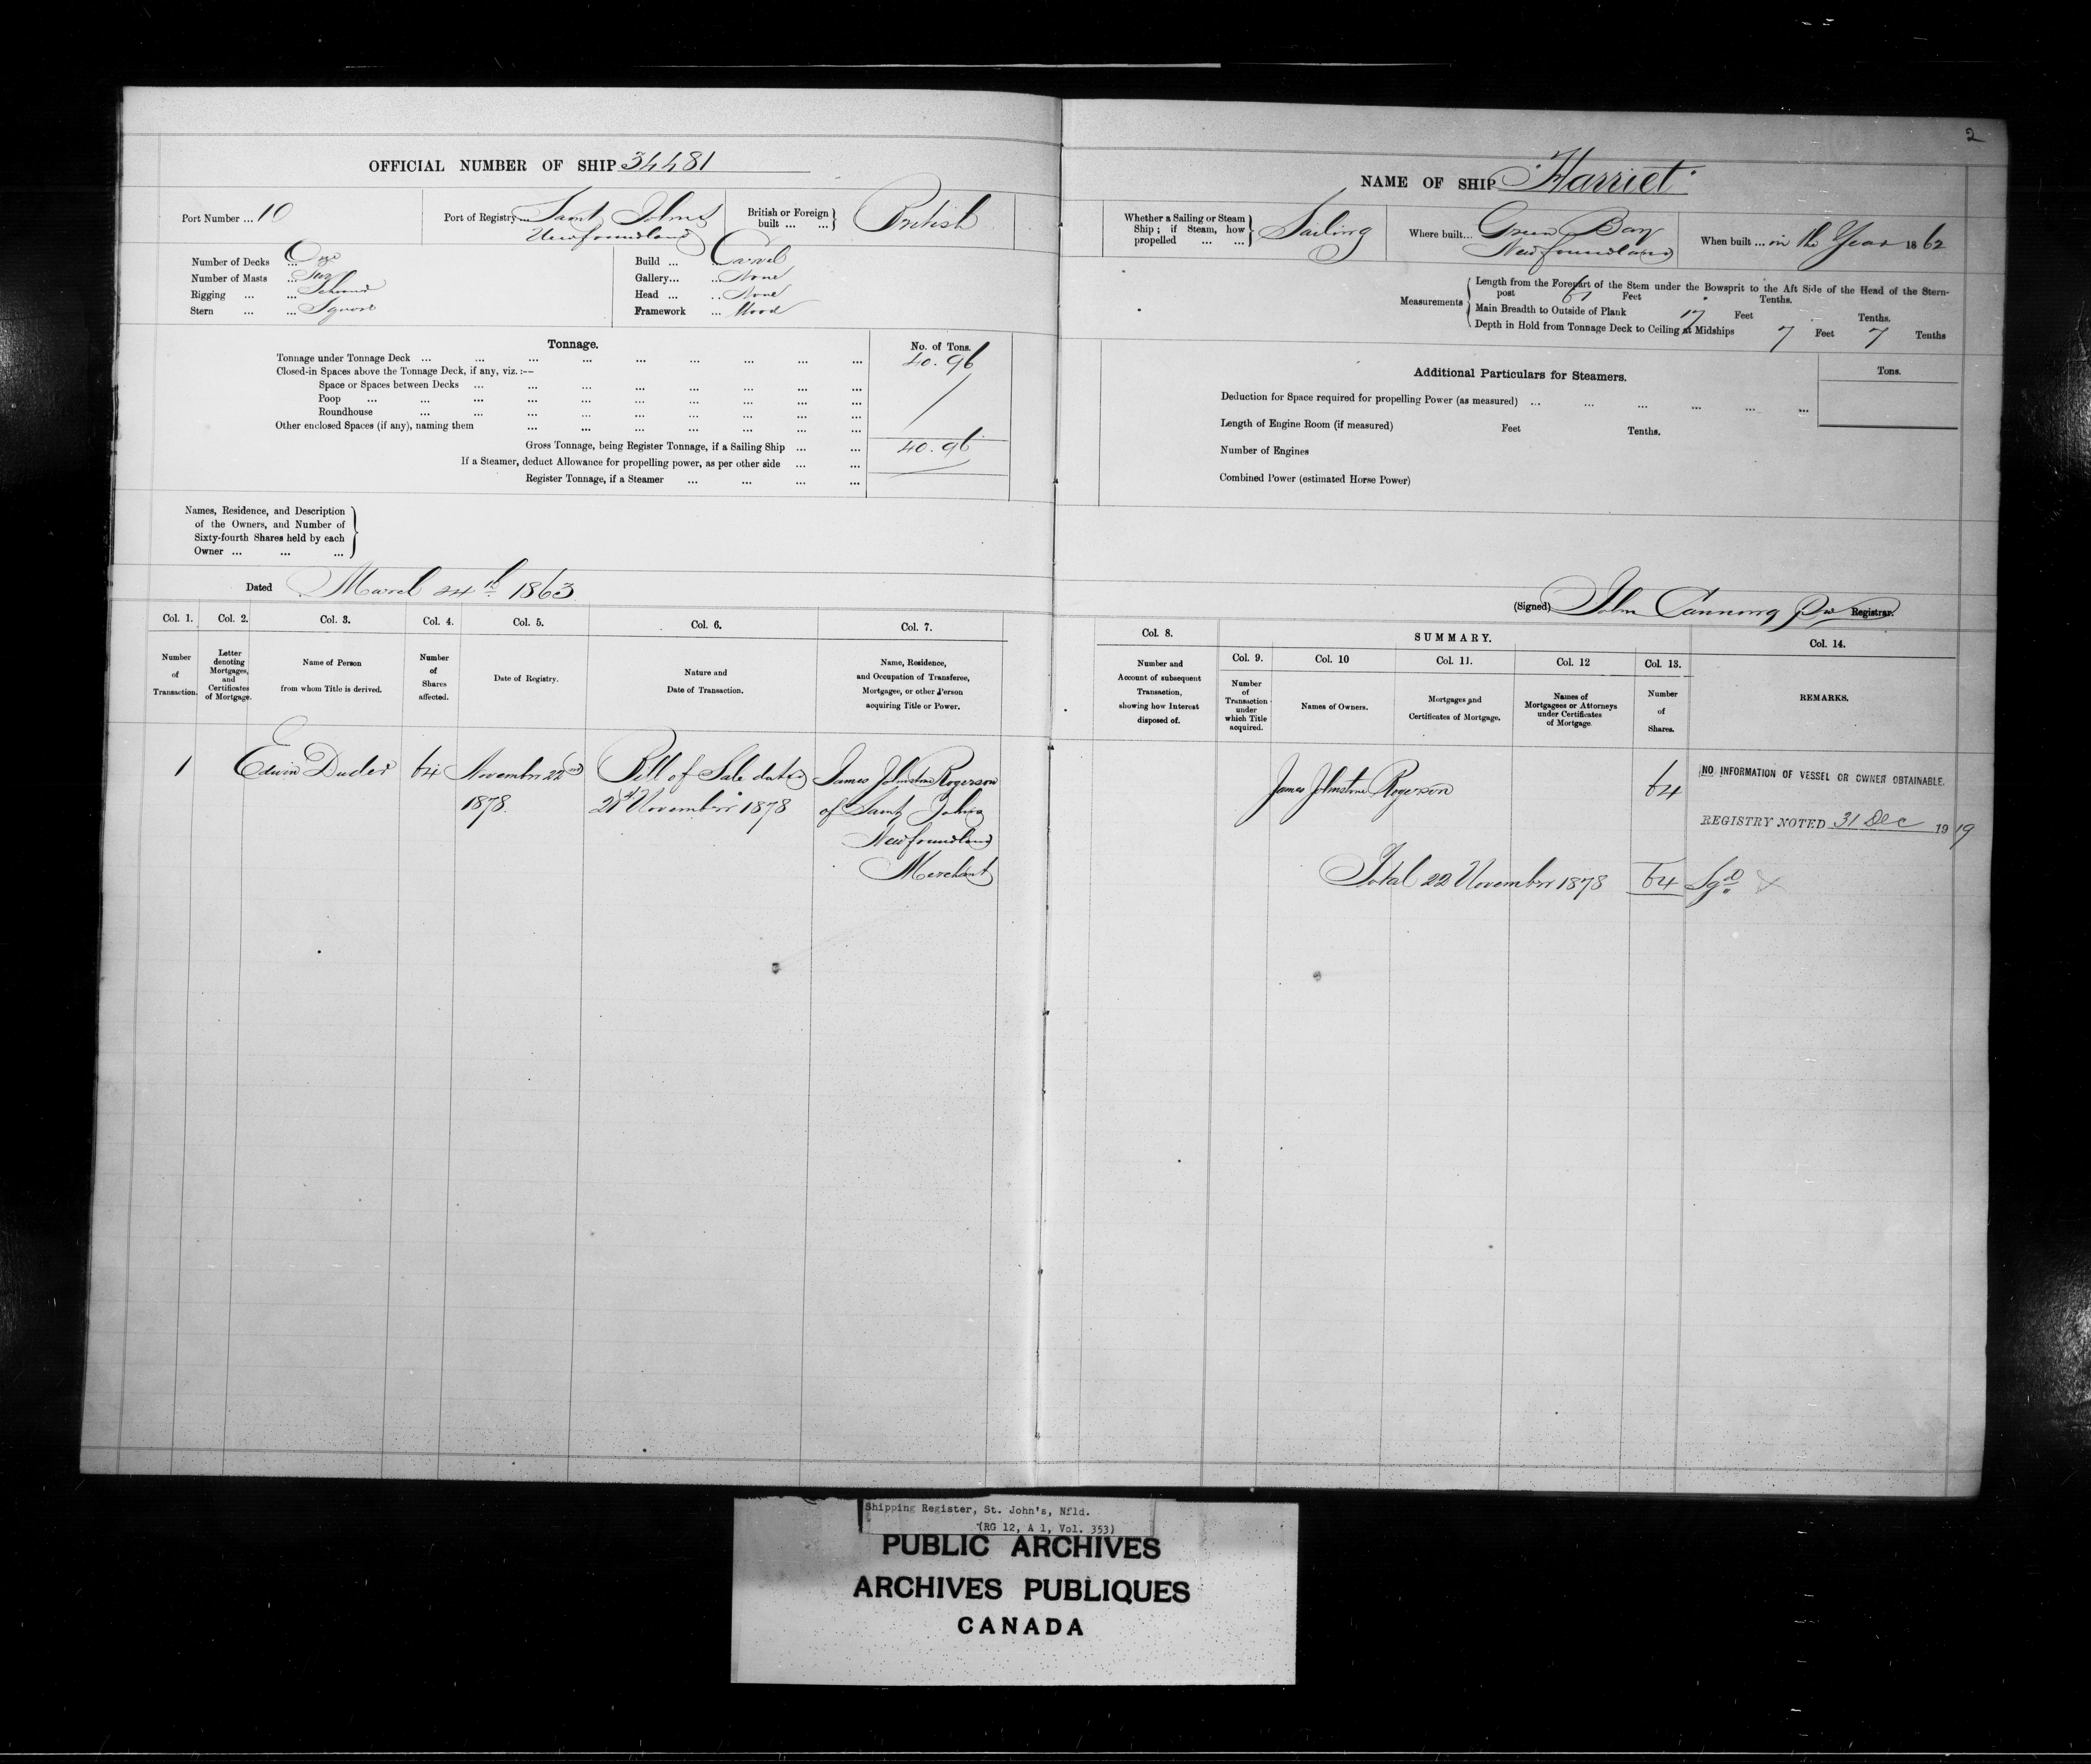 2
OFFICIAL NUMBER OF SHIP 34481
Port Number ... 10
Port of Registry ... Saint Johns
Newfoundland
British or Foreign
built ... ...
British
Number of Decks ... One
Number of Masts ... Two
Rigging ... ... Schooner
Stern ... ... Square
Build ... Carvel
Gallery... ... None
Head ... ... None
Framework ... Wood
Tonnage.
No. of Tons.
Tonnage under Tonnage Deck ... ... ... ... ... ... ... ... ... 40.96
Closed-in Spaces above the Tonnage Deck, if any, viz. :--
Space or Spaces between Decks ... ... ... ... ... ... ... ...
Poop ... ... ... ... ... ... ... ... ... ...
Roundhouse ... ... ... ... ... ... ... ... ...
Other enclosed Spaces (if any), naming them ... ... ... ... ... ... ...
Gross Tonnage, being Register Tonnage, if a Sailing Ship ... ... 40.96
If a Steamer, deduct Allowance for propelling power, as per other side ... ...
Register Tonnage, if a Steamer ... ... ... ...
Names, Residence, and Description
of the Owners, and Number of
Sixty-fourth Shares held by each
Owner ... ... ...
Dated March 24th 1863
Col. 1. Col. 2. Col. 3. Col. 4. Col. 5. Col. 6. Col. 7.
Number
of
Transaction.
Letter
denoting
Mortgages,
and
Certificates
of Mortgage.
Name of Person
from whom Title is derived.
Number
of
Shares
affected.
Date of Registry.
Nature and
Date of Transaction.
Name, Residence,
and Occupation of Transferee,
Mortgagee, or other Person
acquiring Title or Power.
1 Edwin Duder 64 November 22nd Bill of Sale dated James Johnstone Rogerson
1878. 21st November 1878 of Saint Johns
Newfoundland
Merchant
NAME OF SHIP "Harriet"
Whether a Sailing or Steam
Ship ; if Steam, how
propelled ... ...
Sailing
Where built... Green Bay
Newfoundland
When built ... in the Year 1862
Measurements
Length from the Forepart of the Stem under the Bowsprit to the Aft Side of the Head of the Stern-
post 61 Feet Tenths.
Main Breadth to Outside of Plank 17 Feet Tenths.
Depth in Hold from Tonnage Deck to Ceiling at Midships 7 Feet 7 Tenths
Additional Particulars for Steamers.
Tons.
Deduction for Space required for propelling Power (as measured) ... ... ... ... ... ...
Length of Engine Room (if measured) Feet Tenths.
Number of Engines
Combined Power (estimated Horse Power)
(Signed) John Canning Registrar.
Col. 8.
SUMMARY.
Col. 9. Col. 10 Col. 11. Col. 12 Col. 13. Col. 14.
Number and
Account of subsequent
Transaction,
showing how Interest
disposed of.
Number
of
Transaction
under
which Title
acquired.
Names of Owners.
Mortgages and
Certificates of Mortgage.
Names of
Mortgagees or Attorneys
under Certificates
of Mortgage.
Number
of
Shares.
REMARKS.
James Johnstone Rogerson 64
NO INFORMATION OF VESSEL OR OWNER OBTAINABLE.
REGISTRY NOTED 31 Dec 1919
Total 22 November 1878 64 Sgd
Shipping Register, St. John's, Nfld.
(RG 12, A 1, Vol. 353)
PUBLIC ARCHIVES
ARCHIVES PUBLIQUES
CANADA